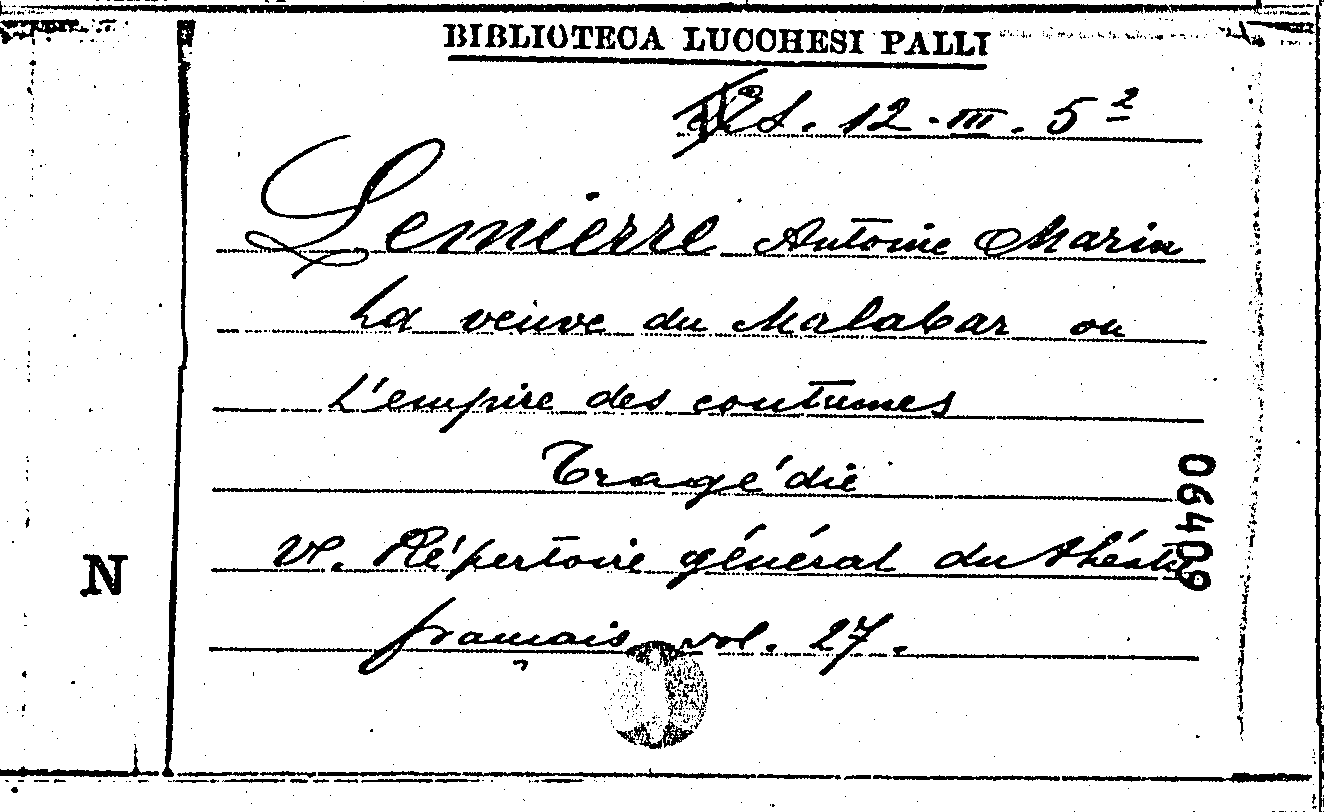 BIBLIOTECA LUCCHESI PALLI
12.III.5²
Lemierre Antoine Marin
La veuve du Malabar ou
L'empire des coutumes
Tragédie
V. Répertoire général du théâtre
français vol. 27.
06409
N